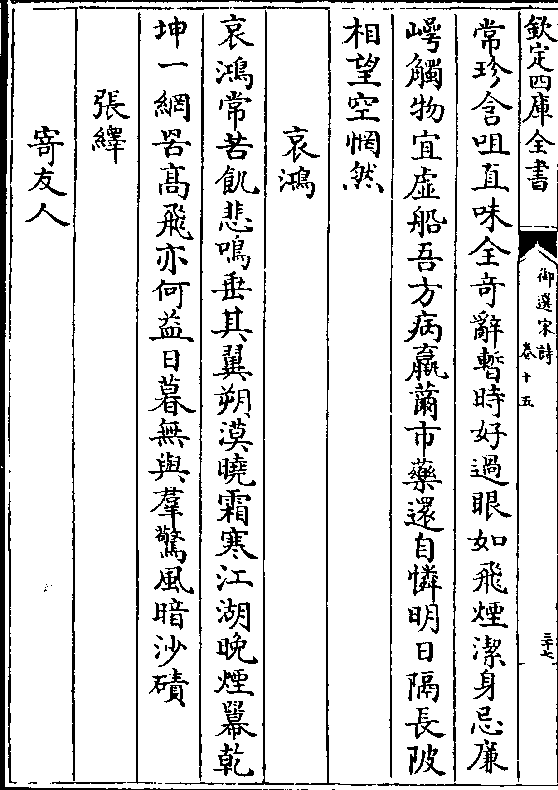 欽定四庫全書
御選宋詩
卷十五
三十七
常珍含咀直味全竒辭暫時好過眼如飛煙潔身忌廉
嶀觸物宜虛船吾方病羸薾市藥還自憐明日隔長陂
相望空惘然
哀鴻
哀鴻常苦飢悲鳴垂其翼朔漠曉霜寒江湖晚煙羃乾
坤一網罟髙飛亦何益日暮無與羣驚風暗沙磧
張繹
寄友人